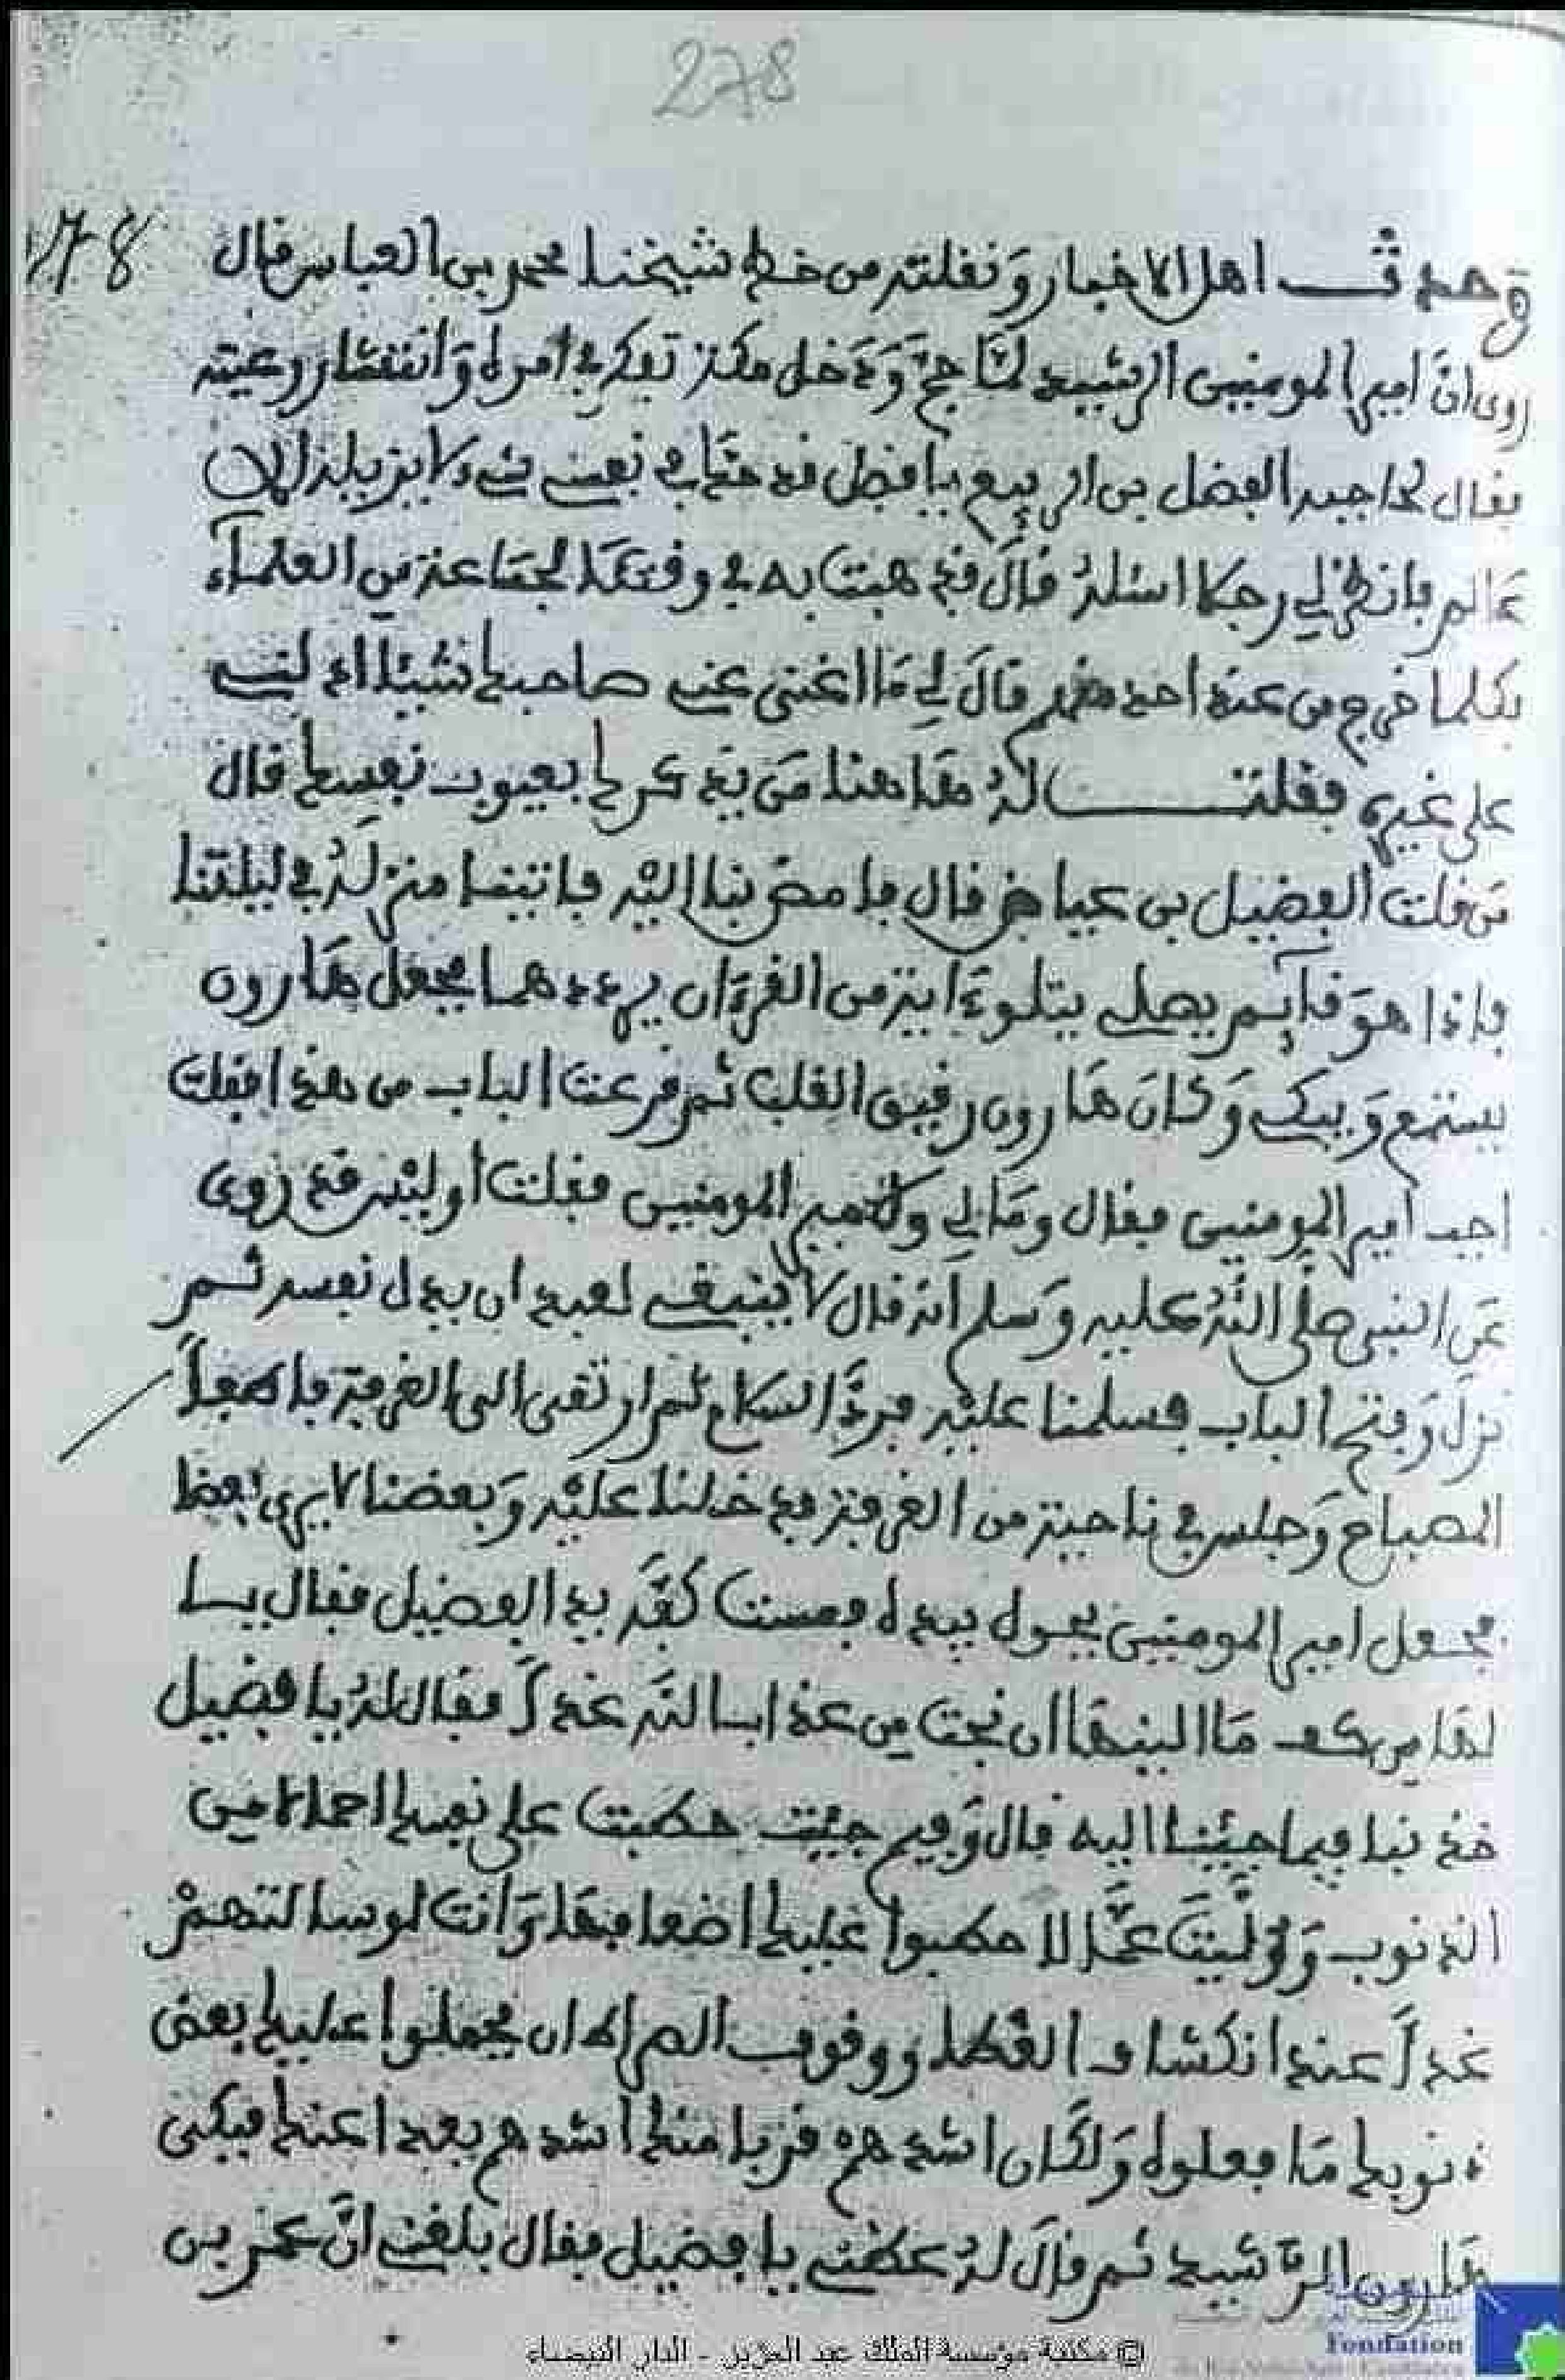 278
178
وحدث اهل الاخبار ونقلته من خط شيخنا محمد بن العباس قال
روى ان امير المومنين الرشيد لمّا حجّ وَدَخل مكة تفكر في امره وَانتشار رعيته
فقال لحاجبه الفضل بن الربيع يا فضل قد حَاك في نفسي شيء لا يزيله الا
عَالم فانظر لي رجلا اسئلهُ قالَ فذهبت به في وقته لجمَاعة من العلمآء
فكلما خرج من عند احد منهم قالَ لي مَا اغنى عني صاحبك شيئا ادلني
على غيره فقلت لهُ هَا هنا مَن يذكرك بعيوب نفسك قال
مَن قلت الفضيل بن عياض قال فامض بنا اليْه فاتينا منزلَهُ في ليلتنا
فاذا هوَ قآيم يصلي يتلو ءاية من القرءان يرددها فجعل هَارون
يستمع وَيبكي وَكانَ هَارون رقيق القلب ثم قرعت الباب من هذا فقلت
اجب امير المومنين فقال ومَا لي ولامير المومنين فقلت اوليْس قد روى
عَن النبي صلى اللهُ عليه وَسلم انه قال لا ينبغي لعبد ان يذل نفسه ثم
نزل وَفتح الباب فسلمنا عليْه فردَّ السلام ثم ارتقى الى الغرفة فاطفأ
المصباح وَجلس في ناحية من الغرفة فدخلنا عليْه وَبعضنا لا يرى بعضا
فجعل امير المومنين يجول بيده فمست كفّه يد الفضيل فقال يا
لهَا من كف مَا الينهَا ان نجت من عذاب الله غداً فقال لهُ يا فضيل
خذ بنا فيما جيْنا اليه قال وَفيم جيْت حطبت على نفسك احمالا من
الذنوب وَوُلّيتَ عمّالا حطبوا عليك اضعافهَا وَانت لو سالتهمْ
غداً عند انكشاف الغطاء ووقوف الصراط ان يحملوا عليك بعض
ذنوبك مَا فعلوه وَلكان اشدهم قربا منك اشدهم بعدا عنك فبكى
هَارون الرشيد ثم قالَ لهُ عظني يا فضيل فقال بلغني انَّ عمر بن
© مكتبة مؤسسة الملك عبد العزيز - الدار البيضاء
Fondation